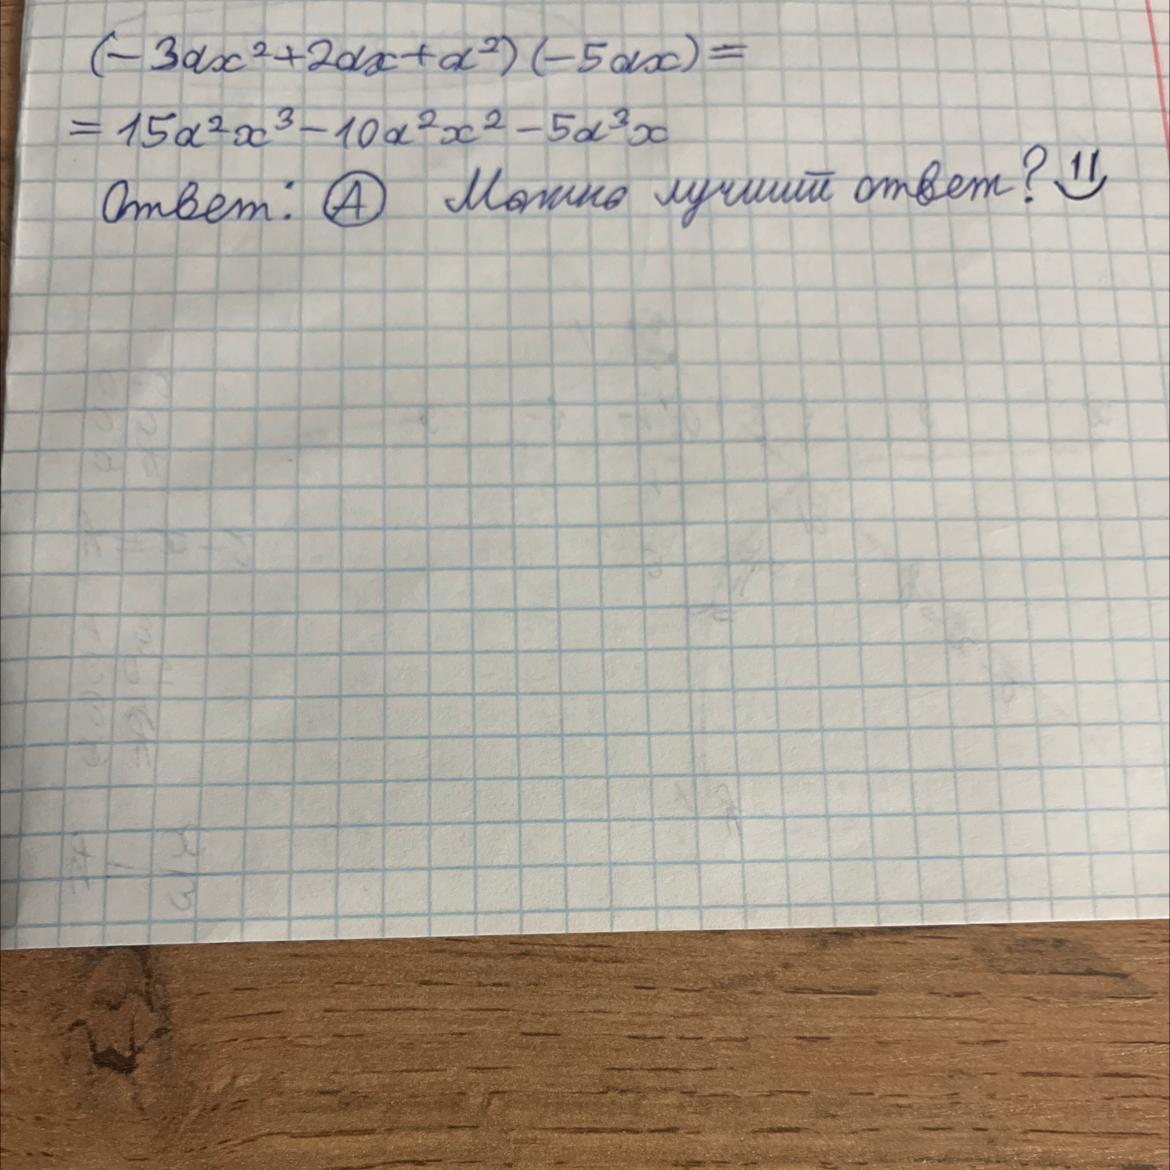 (-3ax²+2ax+a²)(-5ax)=
=15a²x³-10a²x²-5a³x
Ответ: А Можно лучший ответ?